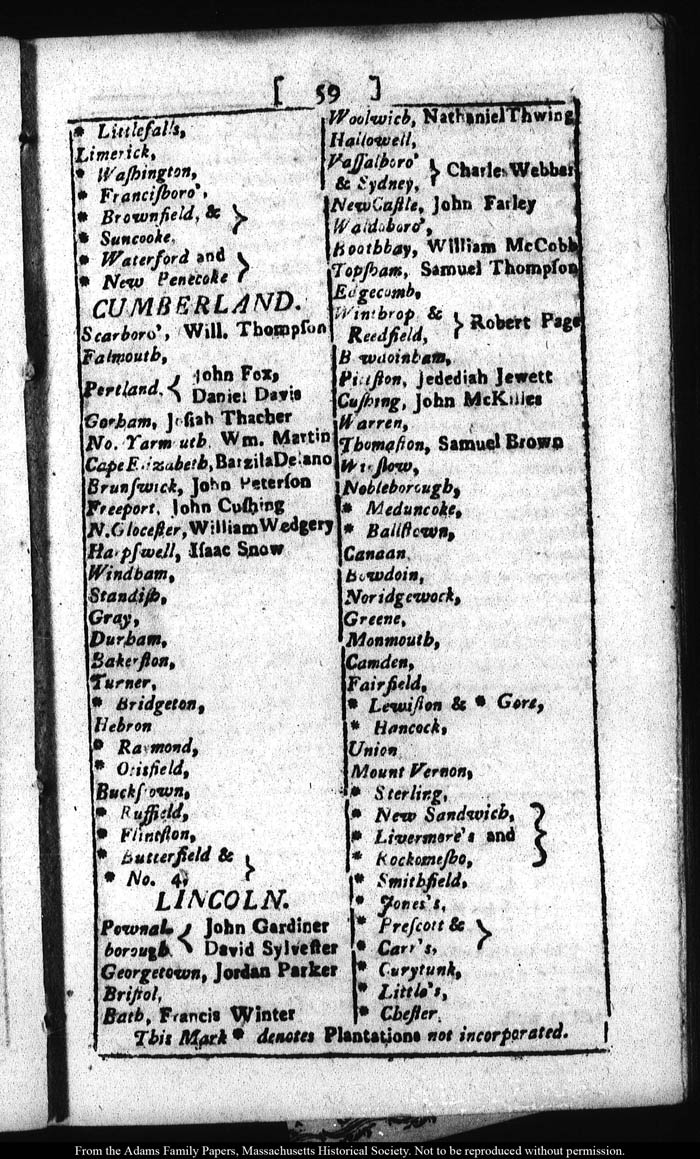 [ 59 ]
* Littlefalls,
Limerick,
* Waſhington,
* Franciſboro',
* Brownfield, & }
* Suncooke,
* Waterford and }
* New Penecoke
CUMBERLAND.
Scarboro', Will. Thompſon
Falmouth,
Portland, { John Fox,
Daniel Davis
Gorham, Joſiah Thacher
No. Yarmouth, Wm. Martin
Cape Elizabeth, Barzila Delano
Brunſwick, John Peterſon
Freeport, John Cuſhing
N. Gloceſter, William Wedgery
Harpſwell, Iſaac Snow
Windham,
Standiſh,
Gray,
Durham,
Bakerſton,
Turner,
* Bridgeton,
Hebron
* Raymond,
* Otisfield,
Buckſtown,
* Ruffield,
* Flintſton,
* Butterfield & }
* No. 4,
LINCOLN.
Pownal- { John Gardiner
borough { David Sylveſter
Georgetown, Jordan Parker
Briſtol,
Bath, Francis Winter
Woolwich, Nathaniel Thwing
Hallowell,
Vaſſalboro' } Charles Webber
& Sydney,
New Caſtle, John Farley
Waldoboro',
Boothbay, William McCobb
Topſham, Samuel Thompſon
Edgecomb,
Winthrop & } Robert Page
Reedfield,
Bowdoinham,
Pittſton, Jedediah Jewett
Cuſhing, John McKilles
Warren,
Thomaſton, Samuel Brown
Winſlow,
Nobleborough,
* Meduncoke,
* Ballſtown,
Canaan,
Bowdoin,
Noridgewock,
Greene,
Monmouth,
Camden,
Fairfield,
* Lewiſton & * Gore,
* Hancock,
Union
Mount Vernon,
* Sterling,
* New Sandwich, }
* Livermore's and
* Rockomeſho,
* Smithfield,
* Jones's,
* Preſcott & }
* Carr's,
* Carytunk,
* Little's,
* Cheſter.
This Mark * denotes Plantations not incorporated.
From the Adams Family Papers, Massachusetts Historical Society. Not to be reproduced without permission.